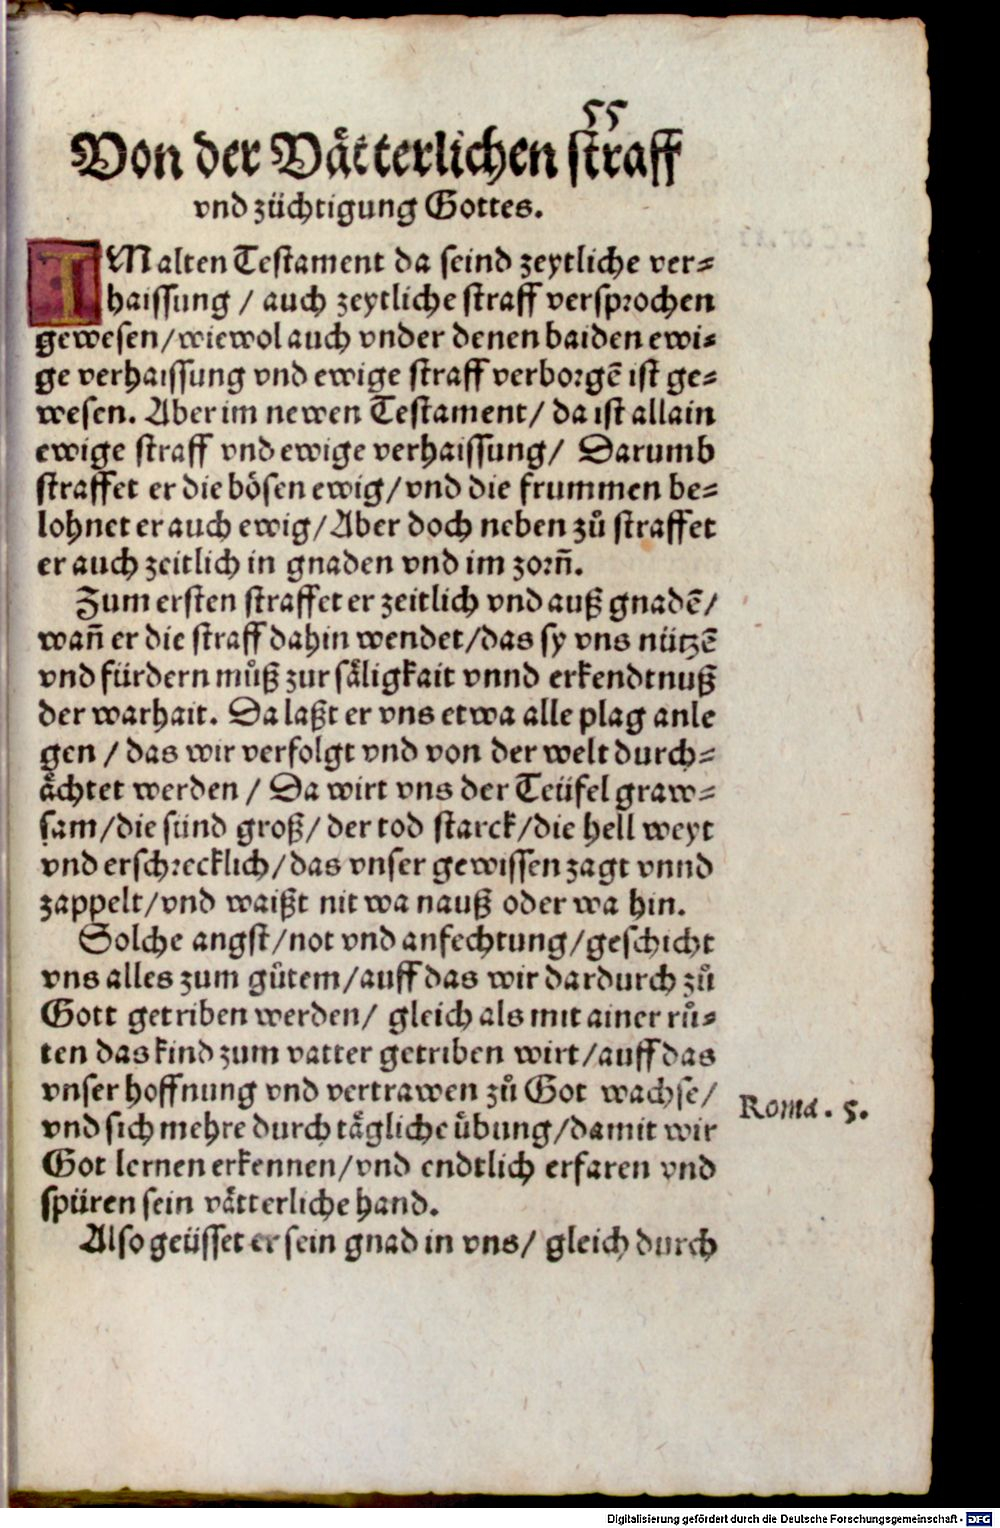 55
Von der Våtterlichen straff
vnd züchtigung Gottes.
IM alten Testament da seind zeytliche ver⸗
haissung / auch zeytliche straff versprochen
gewesen/wiewol auch vnder denen baiden ewi⸗
ge verhaissung vnd ewige straff verborgē ist ge⸗
wesen. Aber im newen Testament/ da ist allain
ewige straff vnd ewige verhaissung/ Darumb
straffet er die bösen ewig/vnd die frummen be⸗
lohnet er auch ewig/Aber doch neben zů straffet
er auch zeitlich in gnaden vnd im zorn̄.
Zum ersten straffet er zeitlich vnd auß gnadē/
wan̄ er die straff dahin wendet/das sy vns nützē
vnd fürdern můß zur såligkait vnnd erkendtnuß
der warhait. Da laßt er vns etwa alle plag anle
gen / das wir verfolgt vnd von der welt durch⸗
åchtet werden / Da wirt vns der Teüfel graw⸗
sam/die sünd groß/ der tod starck/die hell weyt
vnd erschrecklich/das vnser gewissen zagt vnnd
zappelt/vnd waißt nit wa nauß oder wa hin.
Solche angst/not vnd anfechtung/geschicht
vns alles zum gůtem/auff das wir dardurch zů
Gott getriben werden/ gleich als mit ainer rů⸗
ten das kind zum vatter getriben wirt/auff das
vnser hoffnung vnd vertrawen zů Got wachse/
vnd sich mehre durch tågliche übung/damit wir
Got lernen erkennen/vnd endtlich erfaren vnd
spüren sein våtterliche hand.
Also geüsset er sein gnad in vns/ gleich durch
Roma. 5.
Digitalisierung gefördert durch die Deutsche Forschungsgemeinschaft - DFG